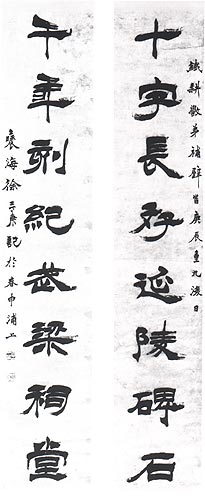 鐵耕敬弟補壁 旹庚辰重九後日
十字長存延陵碑石
千年刻紀武梁祠堂
褎海徐三庚記於春申浦上